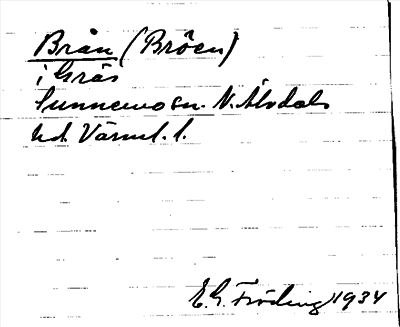 Brån (Bröen)
i Grås
Sunnemo sn. N. Älvdals
hd. Värml. l.
E. G. Fröding 1934